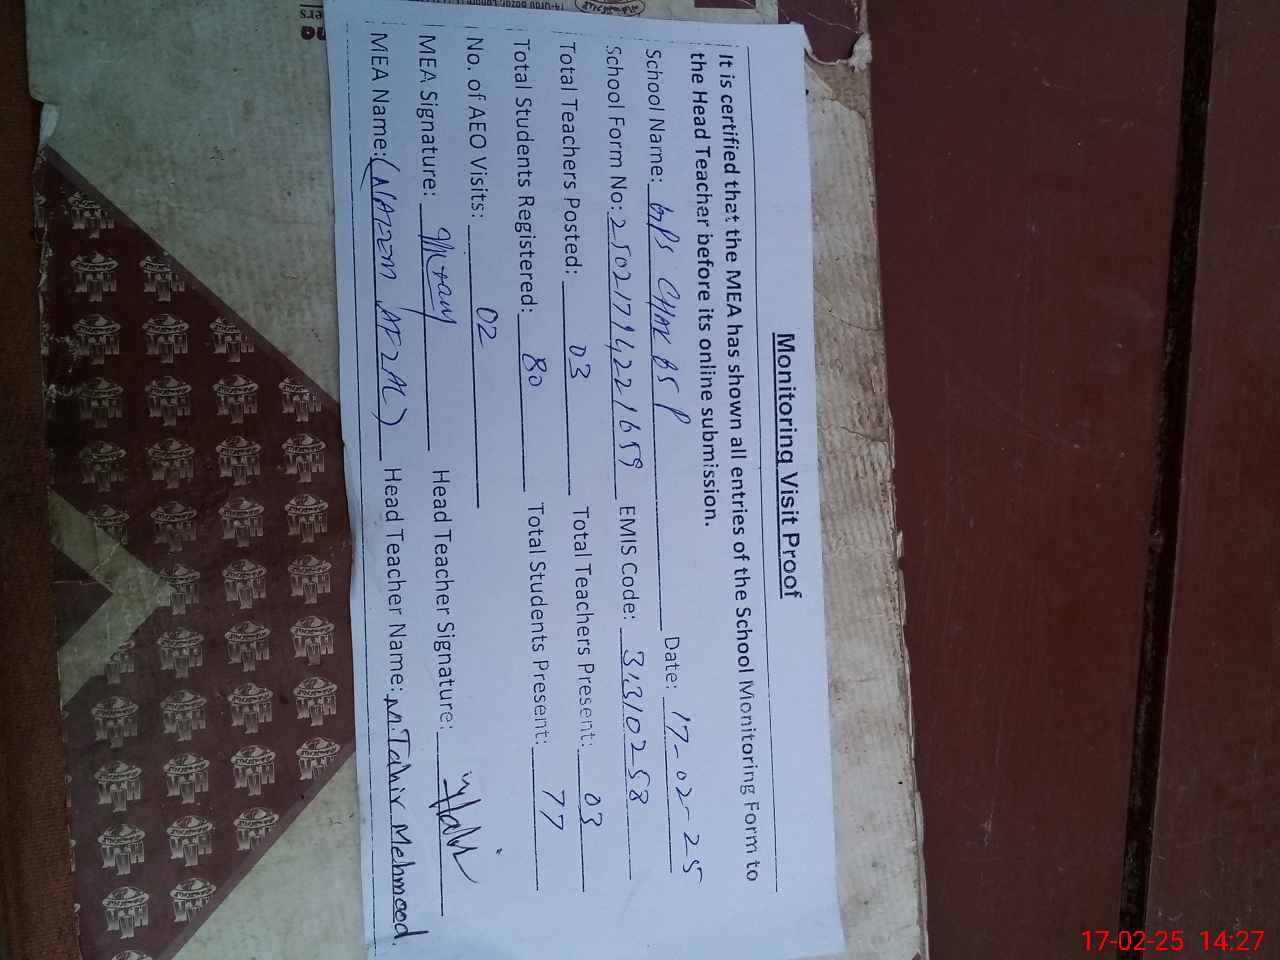 Monitoring Visit Proof
It is certified that the MEA has shown all entries of the School Monitoring Form to
the Head Teacher before its online submission.
School Name: GPS CHAK 85 P Date: 17-02-25
School Form No: 25021714221659 EMIS Code: 31310258
Total Teachers Posted: 03 Total Teachers Present: 03
Total Students Registered: 80 Total Students Present: 77
No. of AEO Visits: 02
MEA Signature: Head Teacher Signature:
MEA Name: (NAEEM AFZAL) Head Teacher Name: M. Tahir Mehmood.
17-02-25 14:27